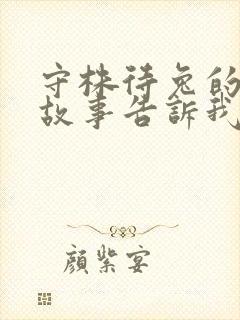 守株待兔的
故事告訴我
顏紫宴